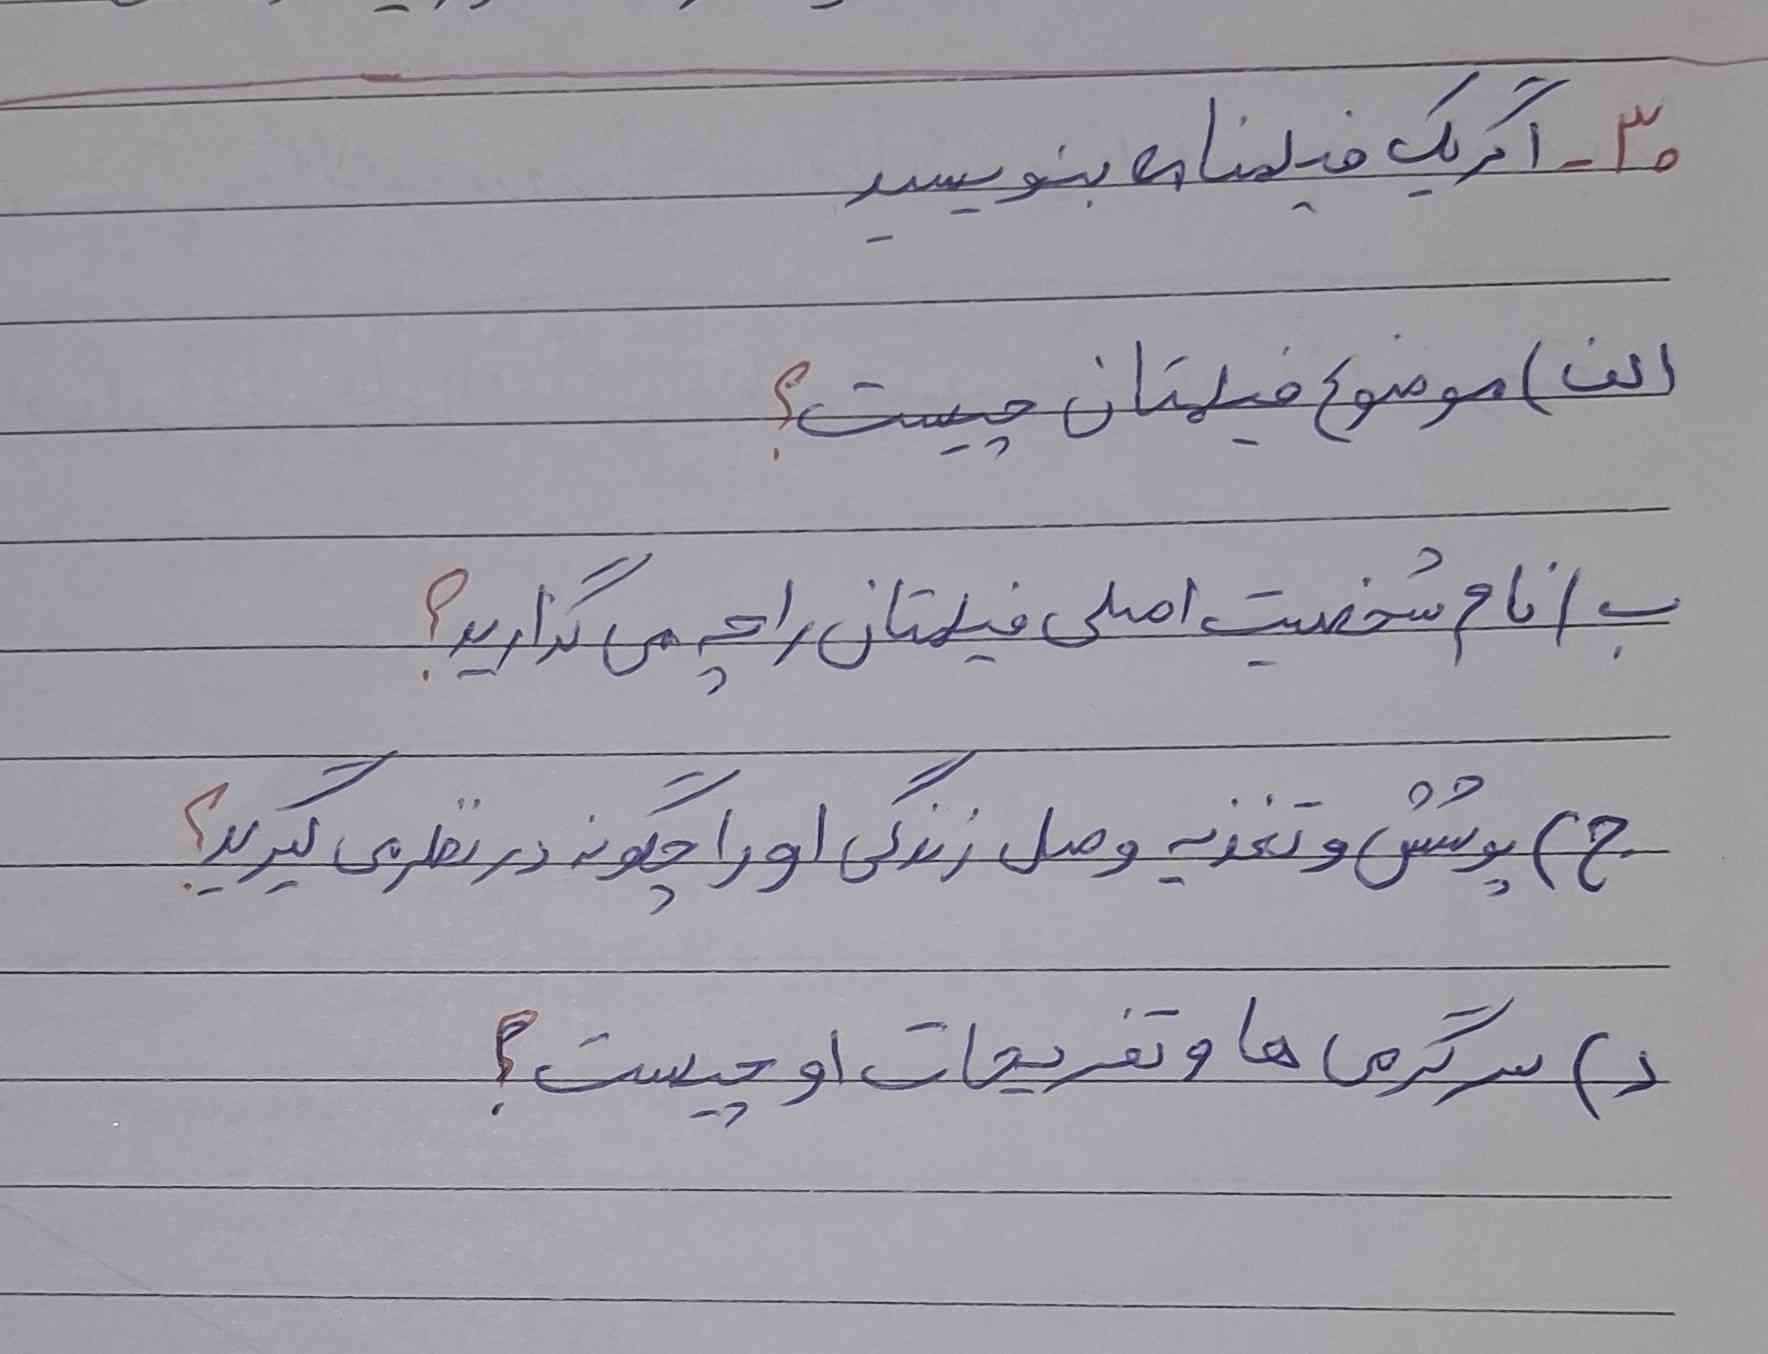 ۳۰- اگر یک فیلمنامه بنویسید
الف) موضوع فیلمتان چیست؟
ب) نام شخصیت اصلی فیلمتان را چه می گذارید؟
ج) پوشش و تغذیه و محل زندگی او را چگونه در نظر می گیرید؟
د) سرگرمی ها و تفریحات او چیست؟